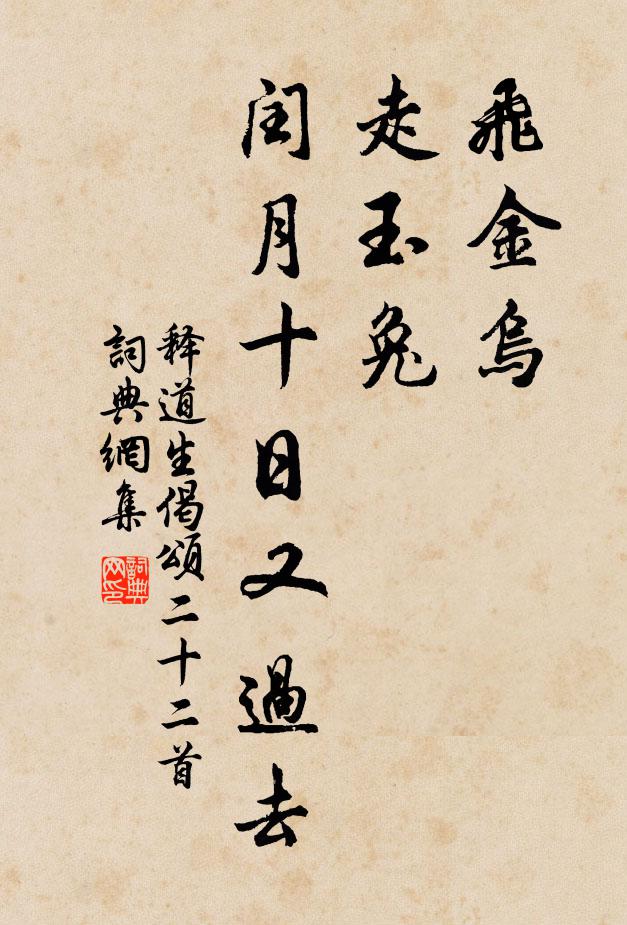 飛金烏
走玉兔
閏月十日又過去
释道生偈頌二十二首
詞典網集
詞典
网印